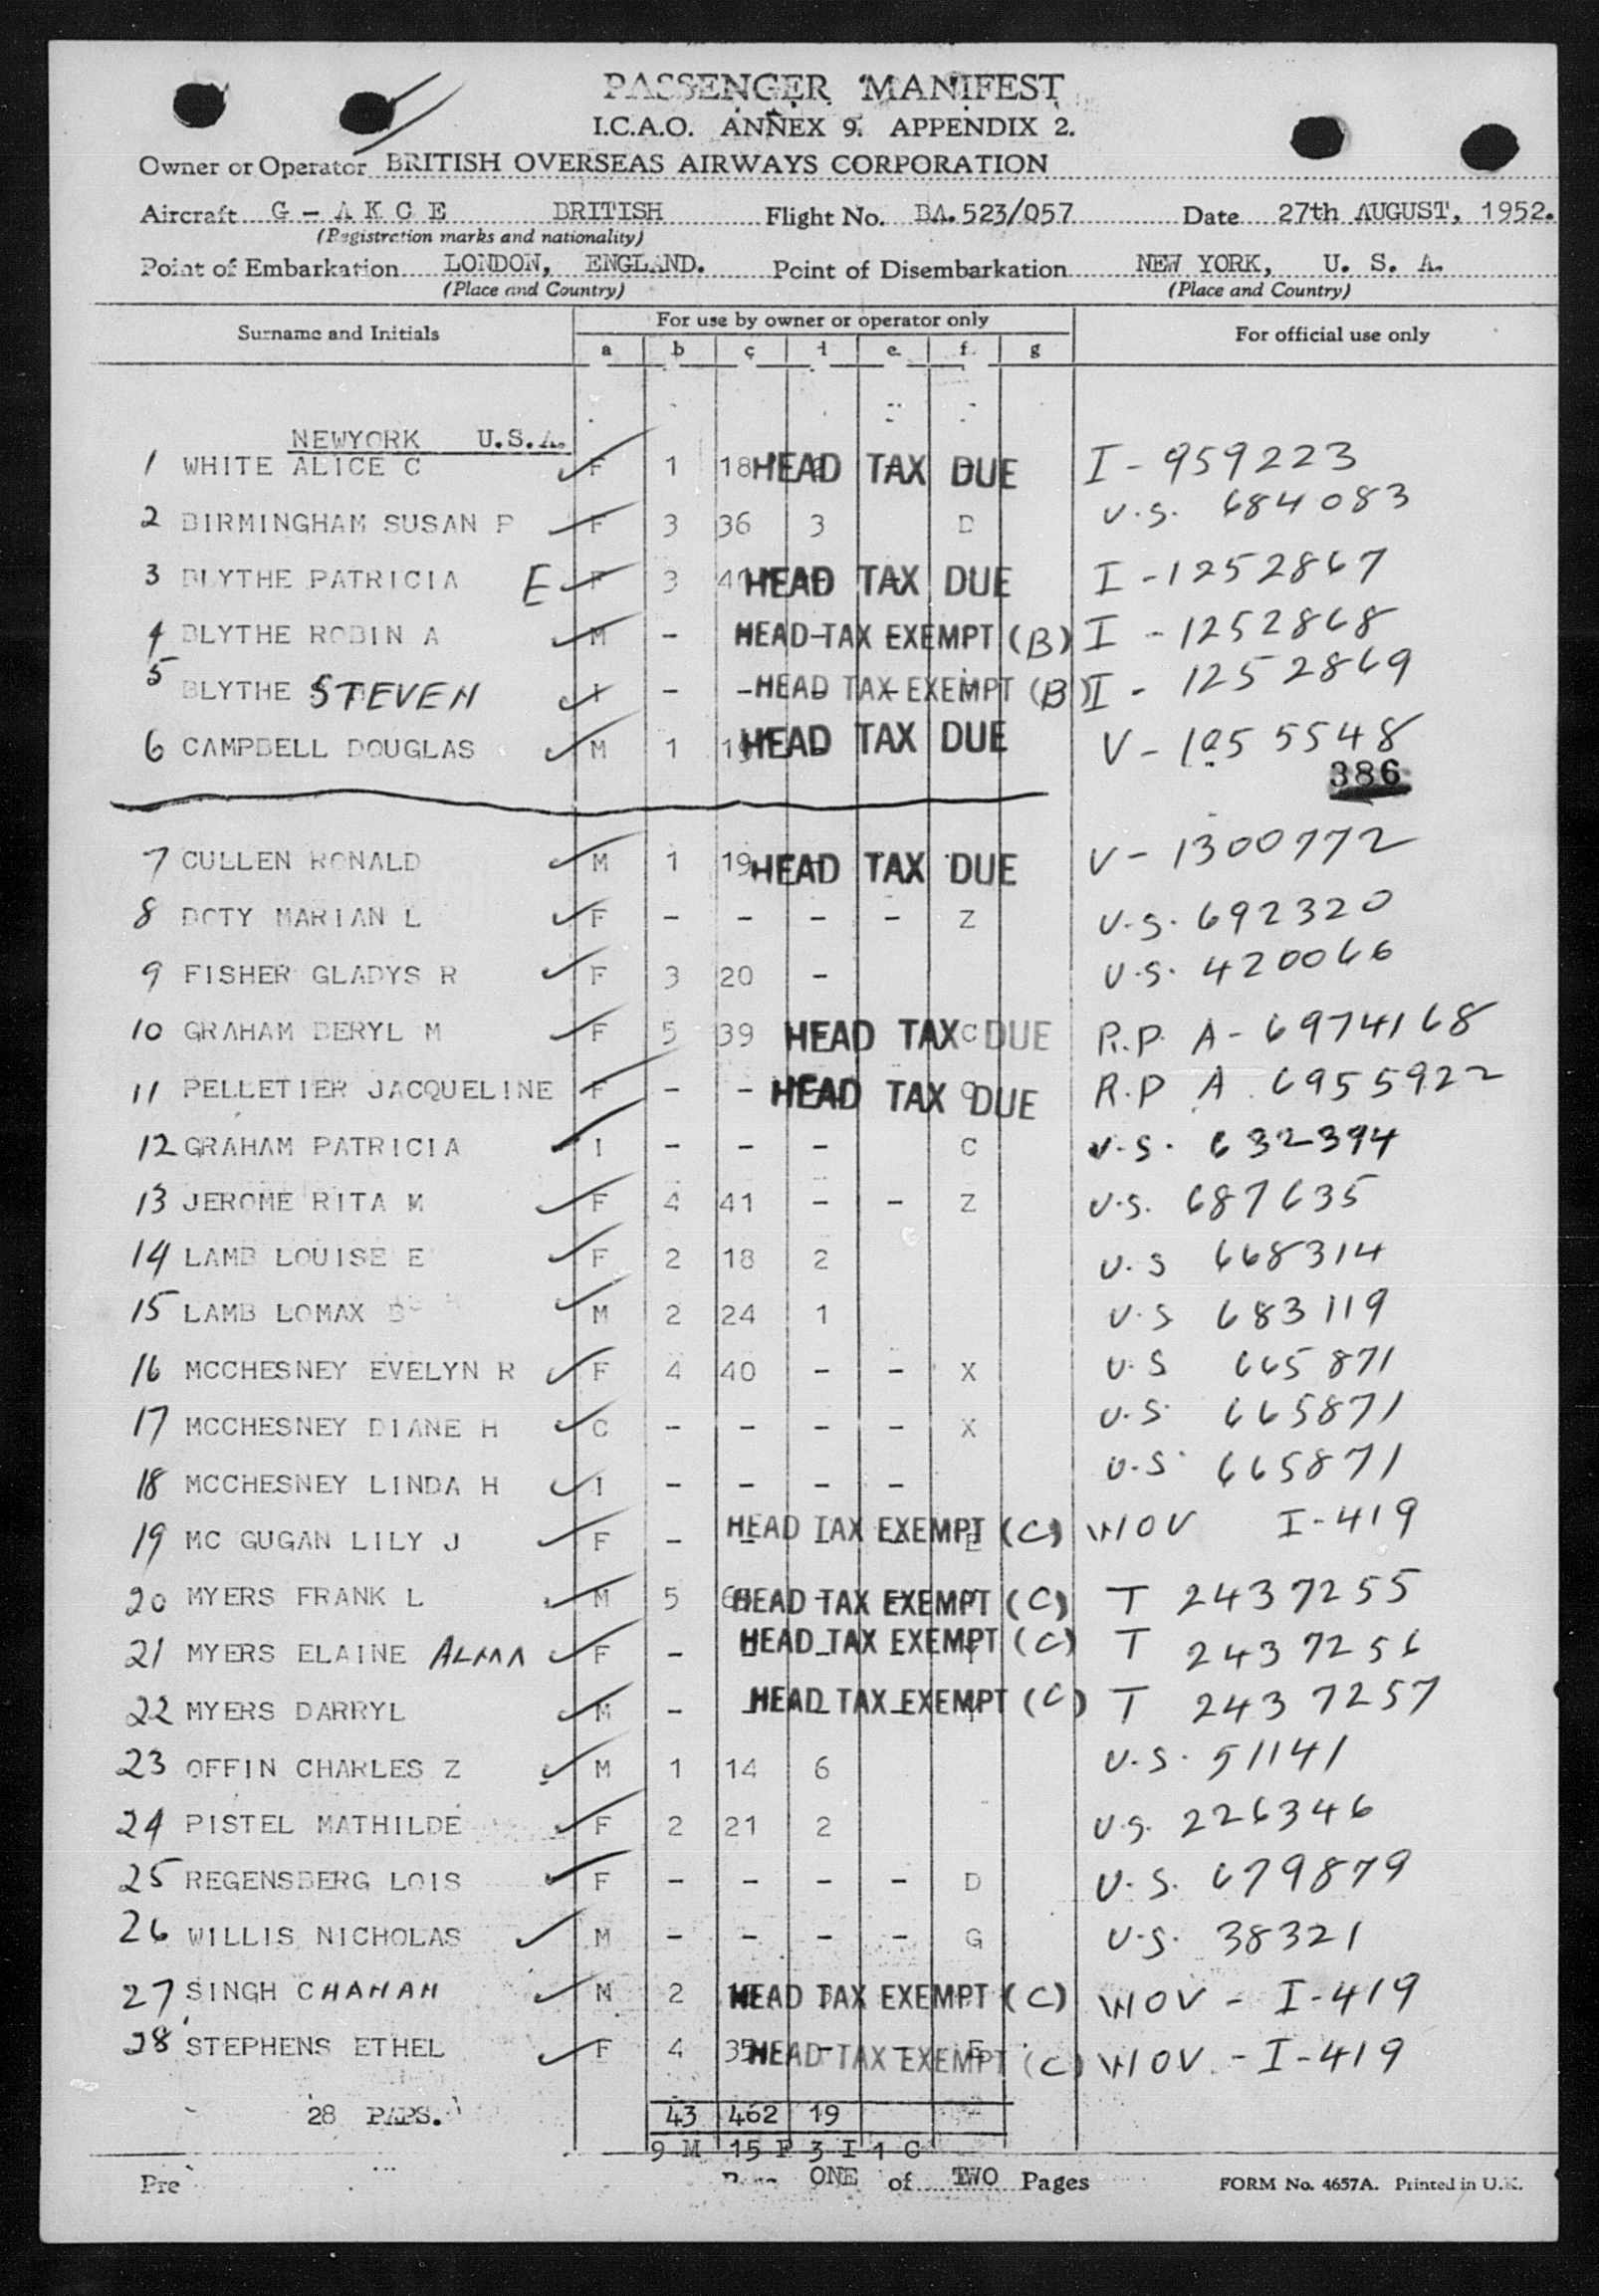 PASSENGER MANIFEST
I.C.A.O. ANNEX 9. APPENDIX 2.
Owner or Operator BRITISH OVERSEAS AIRWAYS CORPORATION
Aircraft G - A K C E BRITISH Flight No. BA.523/057 Date 27th AUGUST, 1952.
(Registration marks and nationality)
Point of Embarkation LONDON, ENGLAND. Point of Disembarkation NEW YORK, U. S. A.
(Place and Country) (Place and Country)
Surname and Initials For use by owner or operator only For official use only
a b c d e f g
NEWYORK U.S.A.
1 WHITE ALICE C F 1 18 HEAD TAX DUE I - 959223
2 BIRMINGHAM SUSAN P F 3 36 3 D U.S. 684083
3 BLYTHE PATRICIA E F 3 HEAD TAX DUE I - 1252867
4 BLYTHE ROBIN A M - HEAD TAX EXEMPT (B) I - 1252868
5 BLYTHE STEVEN I - - HEAD TAX EXEMPT (B) I - 1252869
6 CAMPBELL DOUGLAS M 1 HEAD TAX DUE V - 1055548
386
7 CULLEN RONALD M 1 19 HEAD TAX DUE V - 1300772
8 DOTY MARIAN L F - - - - Z U.S. 692320
9 FISHER GLADYS R F 3 20 - U.S. 420066
10 GRAHAM BERYL M F 5 39 HEAD TAX C DUE R.P. A - 6974168
11 PELLETIER JACQUELINE F - - HEAD TAX DUE R.P A 6955922
12 GRAHAM PATRICIA I - - - C U.S. 632394
13 JEROME RITA M F 4 41 - - Z U.S. 687635
14 LAMB LOUISE E F 2 18 2 U.S 668314
15 LAMB LOMAX B M 2 24 1 U.S 683119
16 MCCHESNEY EVELYN R F 4 40 - - X U.S 665871
17 MCCHESNEY DIANE H C - - - - X U.S. 665871
18 MCCHESNEY LINDA H I - - - - U.S. 665871
19 MC GUGAN LILY J F - HEAD TAX EXEMPT (C) WOV I-419
20 MYERS FRANK L M 5 HEAD TAX EXEMPT (C) T 2437255
21 MYERS ELAINE ALMA F - HEAD TAX EXEMPT (C) T 2437256
22 MYERS DARRYL M - HEAD TAX EXEMPT (C) T 2437257
23 OFFIN CHARLES Z M 1 14 6 U.S. 51141
24 PISTEL MATHILDE F 2 21 2 U.S. 226346
25 REGENSBERG LOIS F - - - - D U.S. 679879
26 WILLIS NICHOLAS M - - - - G U.S. 38321
27 SINGH CHANAN M 2 HEAD TAX EXEMPT (C) WOV - I-419
28 STEPHENS ETHEL F 4 35 HEAD TAX EXEMPT (C) WOV - I-419
28 PAPS. 43 462 19
9 M 15 F 3 I 1 C
Pre ONE of TWO Pages FORM No. 4657A. Printed in U.K.